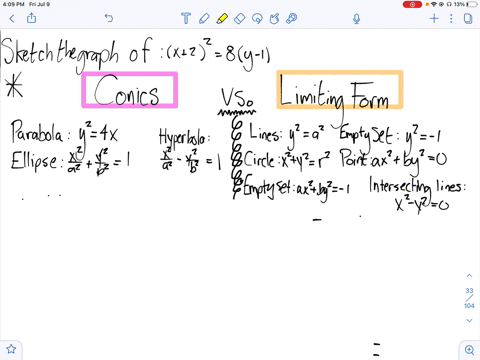 4:09 PM Fri Jul 9
13%
Sketch the graph of : (x+2)² = 8(y-1)
* Conics vs. Limiting Form
Parabola: y² = 4x
Ellipse: x²/a² + y²/b² = 1
Hyperbola:
x²/a² - y²/b² = 1
Lines: y² = a² Empty Set: y² = -1
Circle: x²+y² = r² Point: ax² + by² = 0
Empty Set: ax²+by² = -1 Intersecting lines:
x²-y² = 0
33
/
104